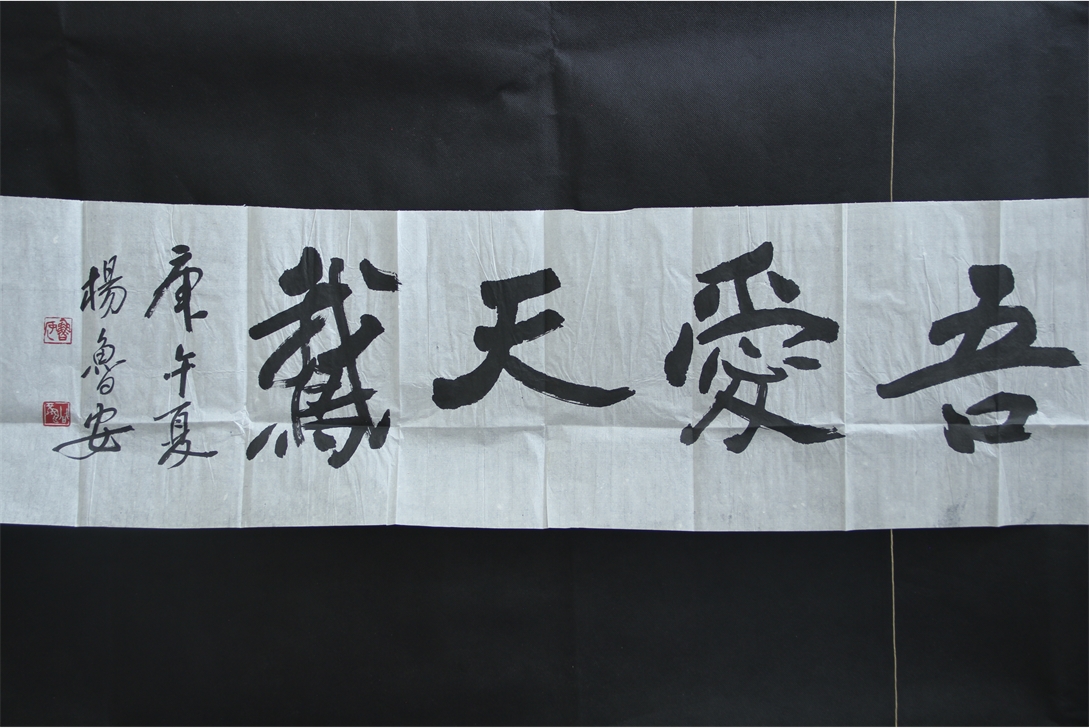 吾愛天鵞
庚午夏
楊魯安